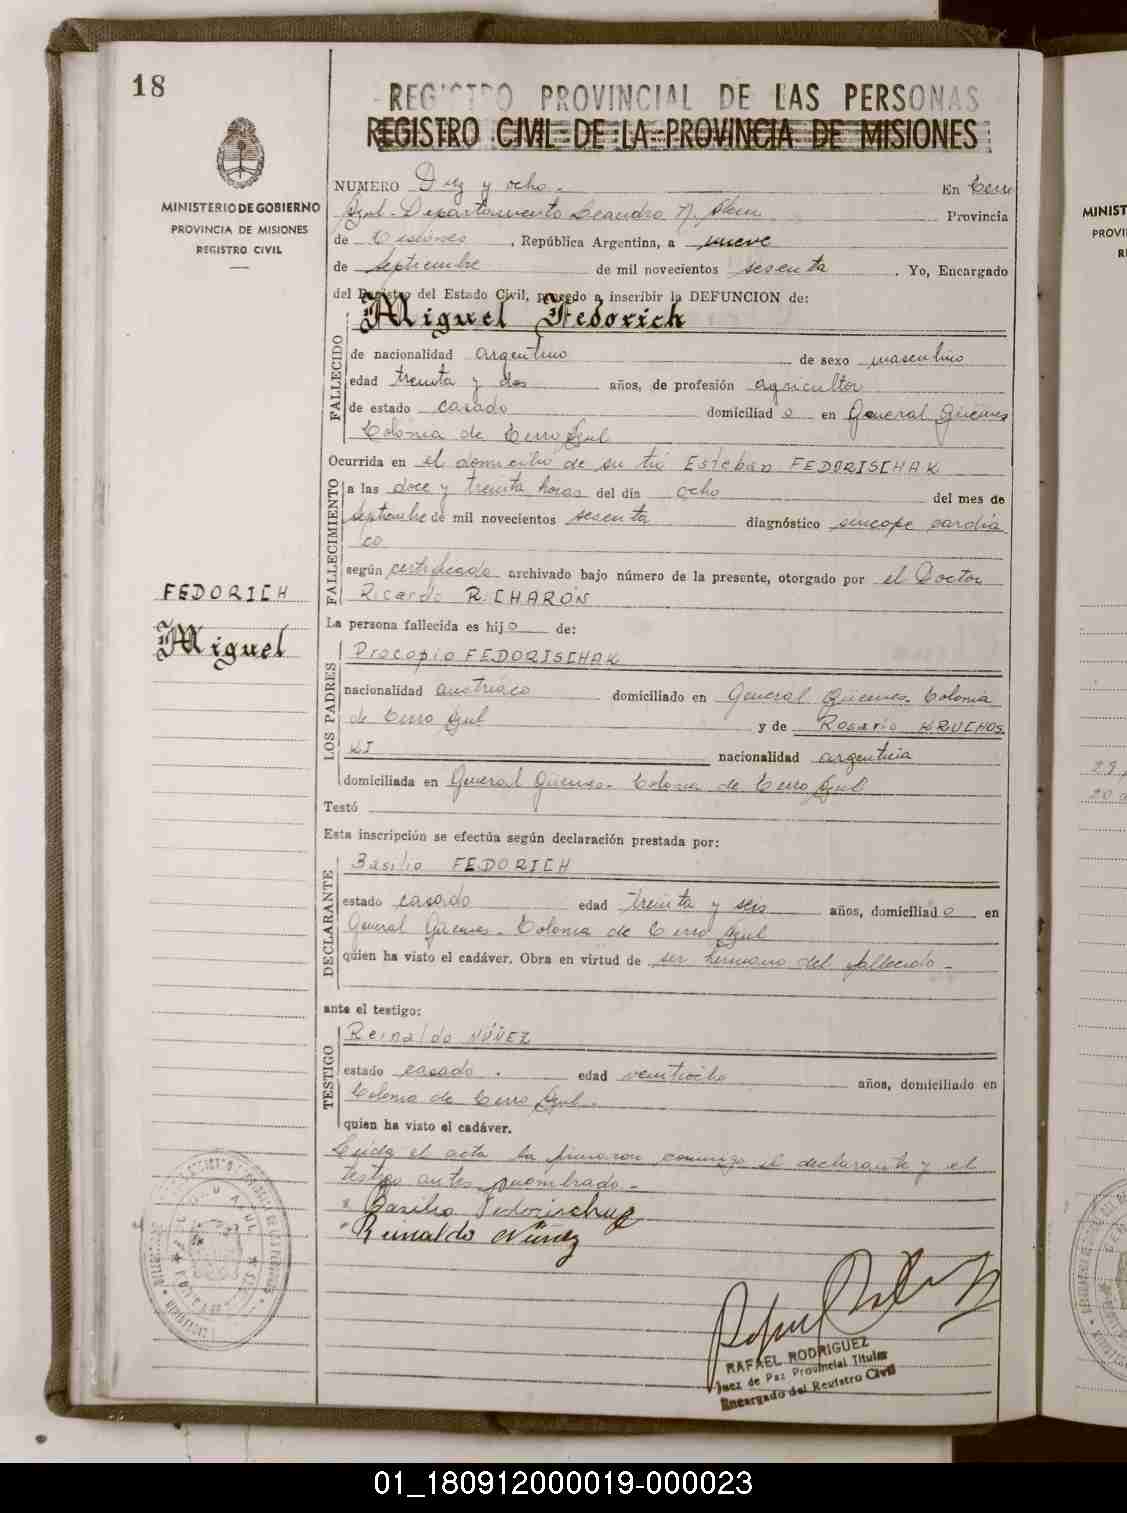 18
MINISTERIO DE GOBIERNO
PROVINCIA DE MISIONES
REGISTRO CIVIL
REGISTRO PROVINCIAL DE LAS PERSONAS
REGISTRO CIVIL DE LA PROVINCIA DE MISIONES
NUMERO Diez y ocho.- En Cerro
Azul- Departamento Leandro N. Alem Provincia
de Misiones, República Argentina, a nueve
de septiembre de mil novecientos sesenta. Yo, Encargado
del Registro del Estado Civil, procedo a inscribir la DEFUNCION de:
Miguel Fedorich
FALLECIDO
de nacionalidad argentino de sexo masculino
edad treinta y dos años, de profesión agricultor
de estado casado domiciliado en General Güemes
Colonia de Cerro Azul
Ocurrida en el domicilio de su tio Esteban FEDORISCHAK
FALLECIMIENTO
a las doce y treinta horas del día ocho del mes de
septiembre de mil novecientos sesenta diagnóstico síncope cardía
co
según certificado archivado bajo número de la presente, otorgado por el Doctor
Ricardo RICHARÓN
FEDORICH
Miguel
La persona fallecida es hijo de:
LOS PADRES
Procopio FEDORISCHAK
nacionalidad austríaco domiciliado en General Güemes- Colonia
de Cerro Azul y de Rosario KRUCHOS
KI nacionalidad argentina
domiciliada en General Güemes- Colonia de Cerro Azul
Testó
Esta inscripción se efectúa según declaración prestada por:
DECLARANTE
Basilio FEDORICH
estado casado edad treinta y seis años, domiciliado en
General Güemes- Colonia de Cerro Azul
quien ha visto el cadáver. Obra en virtud de ser hermano del fallecido-
ante el testigo:
TESTIGO
Reinaldo NÚÑEZ
estado casado. edad veintiocho años, domiciliado en
Colonia de Cerro Azul.
quien ha visto el cadáver.
Leida el acta la firmaron conmigo el declarante y el
testigo antes nombrado-
Basilio Fedorischug
Reinaldo Núñez
RAFAEL RODRIGUEZ
Juez de Paz Provincial Titular
Encargado del Registro Civil
MINIST
PROVI
R
01_180912000019-000023